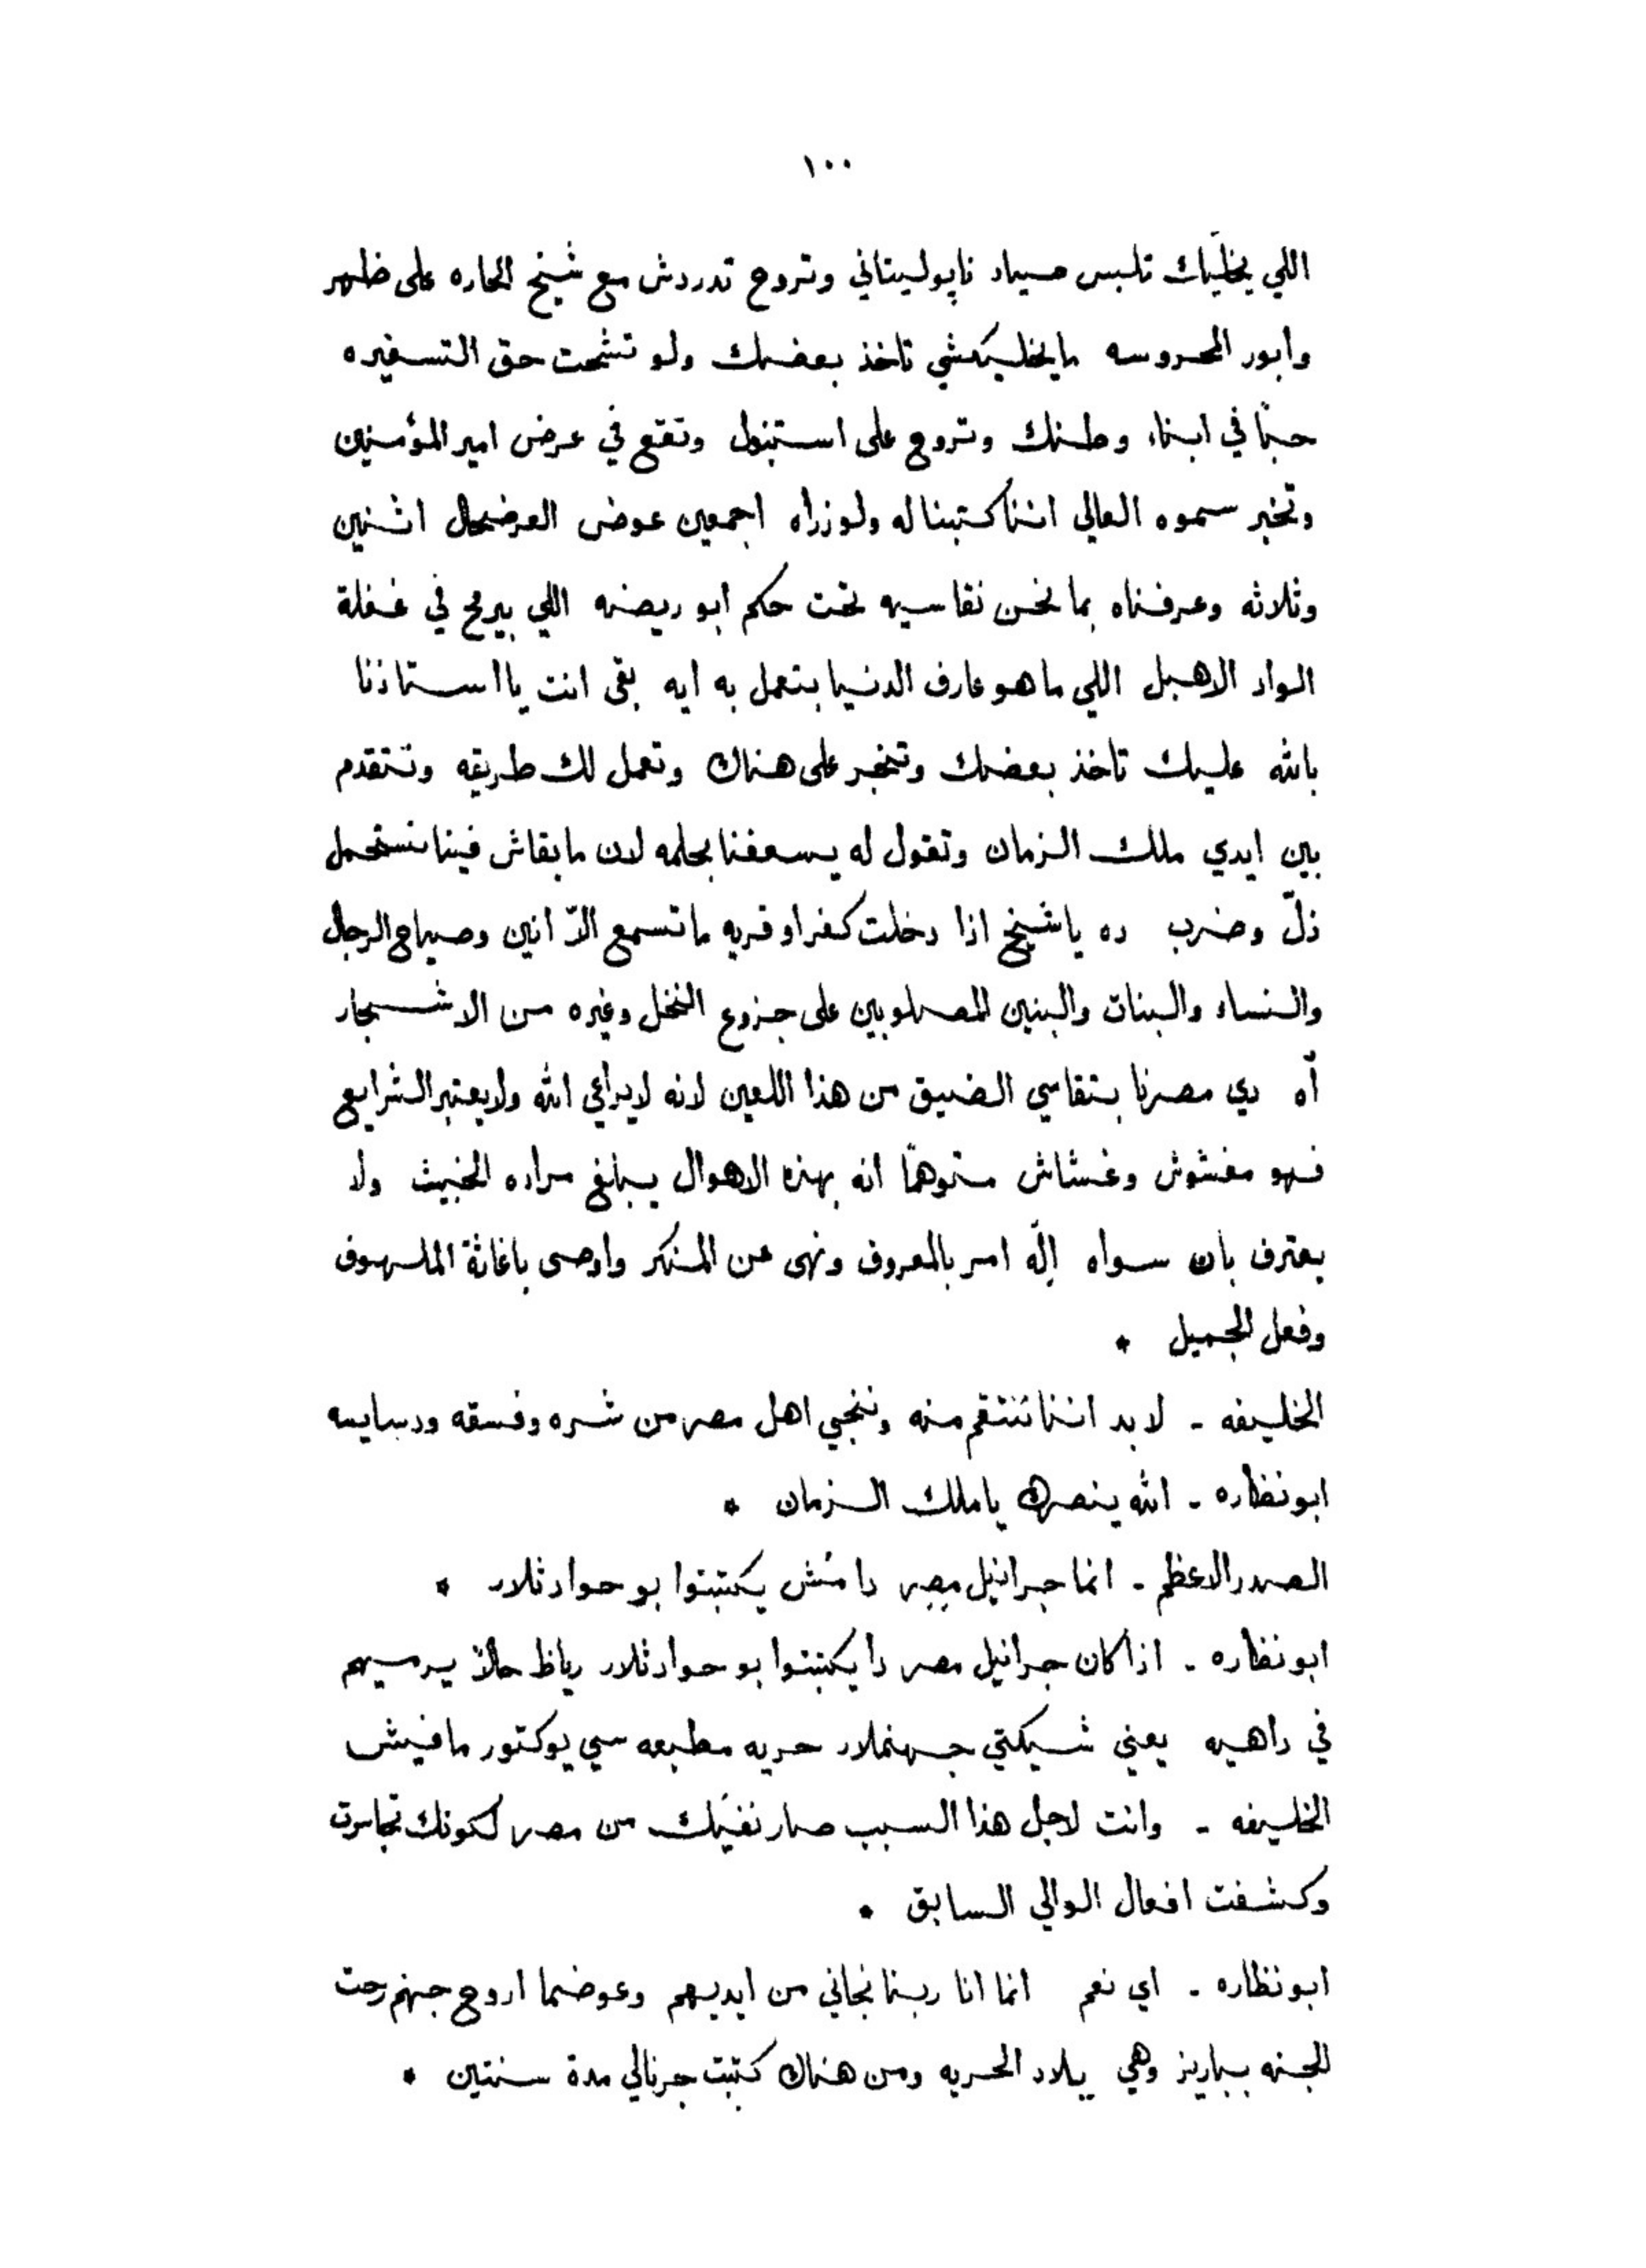 ١٠٠
اللي يخلّيك تلبس صياد ناپوليتاني وتروح تدردش مع شيخ الحاره على ظهر
وابور المحروسه ما يخليكشي تاخذ بعضك ولو تشحت حق التسفيره
حبًا في ابناء وطنك وتروح على استنبول وتقع في عرض امير المؤمنين
وتخبر سموه العالي اننا كتبنا له ولوزراه اجمعين عوض العرضحال اثنين
وثلاثه وعرفناه بما نحن نقاسيه تحت حكم ابو ريضه اللي بيرمح في غفلة
الواد الاهبل اللي ما هو عارف الدنيا بتعمل به ايه بقى انت يا استاذنا
بالله عليك تاخذ بعضك وتنجر على هناك وتعمل لك طريقه وتتقدم
بين ايدي ملك الزمان وتقول له يسعفنا بحلمه لان ما بقاش فينا نستحمل
ذلّ وضرب ده يا شيخ اذا دخلت كفر او قريه ما تسمع الّا انين وصياح الرجال
والنساء والبنات والبنين المصلوبين على جزوع النخل وغيره من الاشجار
آه دي مصرنا بتقاسي الضيق من هذا اللعين لانه لا يراعي الله ولا يعتبر الشرايع
فهو مغشوش وغشاش متوهمًا انه بهذه الاهوال يبلغ مراده الخبيث ولا
يعترف بان سواه إلٰه امر بالمعروف ونهى عن المنكر واوصى باغاثة الملهوف
وفعل الجميل *
الخليفه - لا بد اننا ننتقم منه وننجي اهل مصر من شره وفسقه ودسايسه
ابو نظاره - الله ينصرك يا ملك الزمان *
الصدر الاعظم - انما جرانيل مصر دا مُش يكتبتوا بو حوادثلار *
ابو نظاره - اذا كان جرانيل مصر دا يكتبتوا بو حوادثلار رياظ حالًا يرميهم
في داهيه يعني شيكتي جهنملار حريه مطبعه سي يوكتور مافيش
الخليفه - وانت لاجل هذا السبب صار نفيَك من مصر لكونك تجاسرت
وكشفت افعال الوالي السابق *
ابو نظاره - اي نعم انما انا ربنا نجاني من ايديهم وعوضما اروح جهنم رحت
للجنه بباريز وهي بلاد الحريه ومن هناك كتبت جرنالي مدة سنتين *